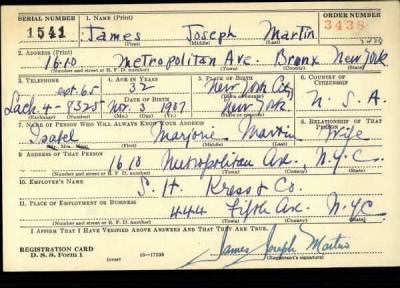 SERIAL NUMBER 1. NAME (Print) ORDER NUMBER
1541 James Joseph Martin 3438
(First) (Middle) (Last)
2. ADDRESS (Print)
1610 Metropolitan Ave. Bronx New York
(Number and street or R. F. D. number) (Town) (County) (State)
3. TELEPHONE 4. AGE IN YEARS 5. PLACE OF BIRTH 6. COUNTRY OF CITIZENSHIP
apt. 65 32 New York City
DATE OF BIRTH (Town or county)
Lack. 4-8325 Nov. 3 1907 New York U. S. A.
(Exchange) (Number) (Mo.) (Day) (Yr.) (State or country)
7. NAME OF PERSON WHO WILL ALWAYS KNOW YOUR ADDRESS 8. RELATIONSHIP OF THAT PERSON
Isabel Marjorie Martin Wife
(Mr., Mrs., Miss) (First) (Middle) (Last)
9. ADDRESS OF THAT PERSON
1610 Metropolitan Ave., N.Y.C.
(Number and street or R. F. D. number) (Town) (County) (State)
10. EMPLOYER'S NAME
S. H. Kress & Co.
11. PLACE OF EMPLOYMENT OR BUSINESS
444 Fifth Ave. N.Y.C.
(Number and street or R. F. D. number) (Town) (County) (State)
I AFFIRM THAT I HAVE VERIFIED ABOVE ANSWERS AND THAT THEY ARE TRUE.
REGISTRATION CARD James Joseph Martin
D. S. S. Form 1 16—17105 (Registrant's signature)